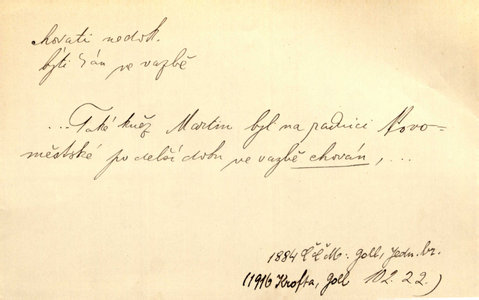 chovati nedok.
býti v ve vazbě
...Také kněz Martin byl na radnici Novo-
městské po delší dobu ve vazbě chován, ...
1884 ČČM. Goll, Jedn. br.
(1916 Krofta, Goll 102. 22.)